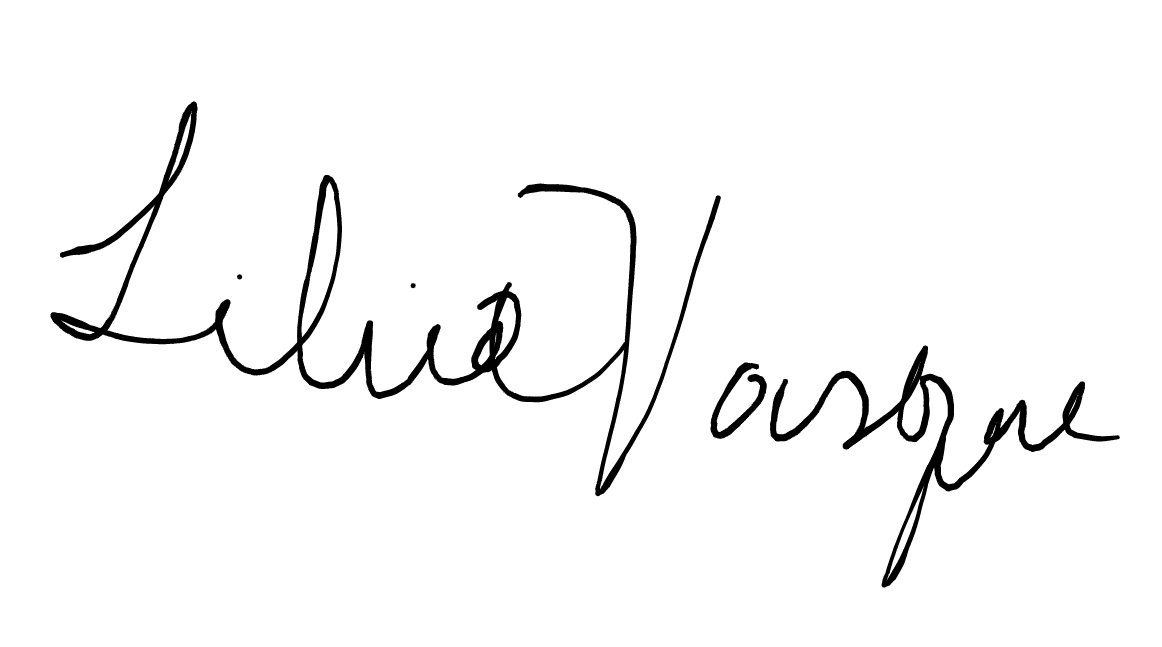 Lilia Vasque